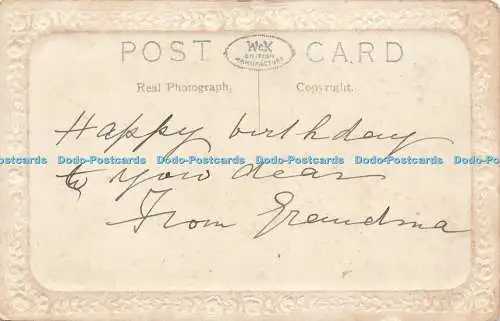 POST CARD
W&K
BRITISH
MANUFACTURE
Real Photograph. Copyright.
Happy birthday
Dodo-Postcards Dodo-Postcards Dodo-Postcards Dodo-Postcards Dodo-Postcards Dodo-Postcards
to you dear
From Grandma